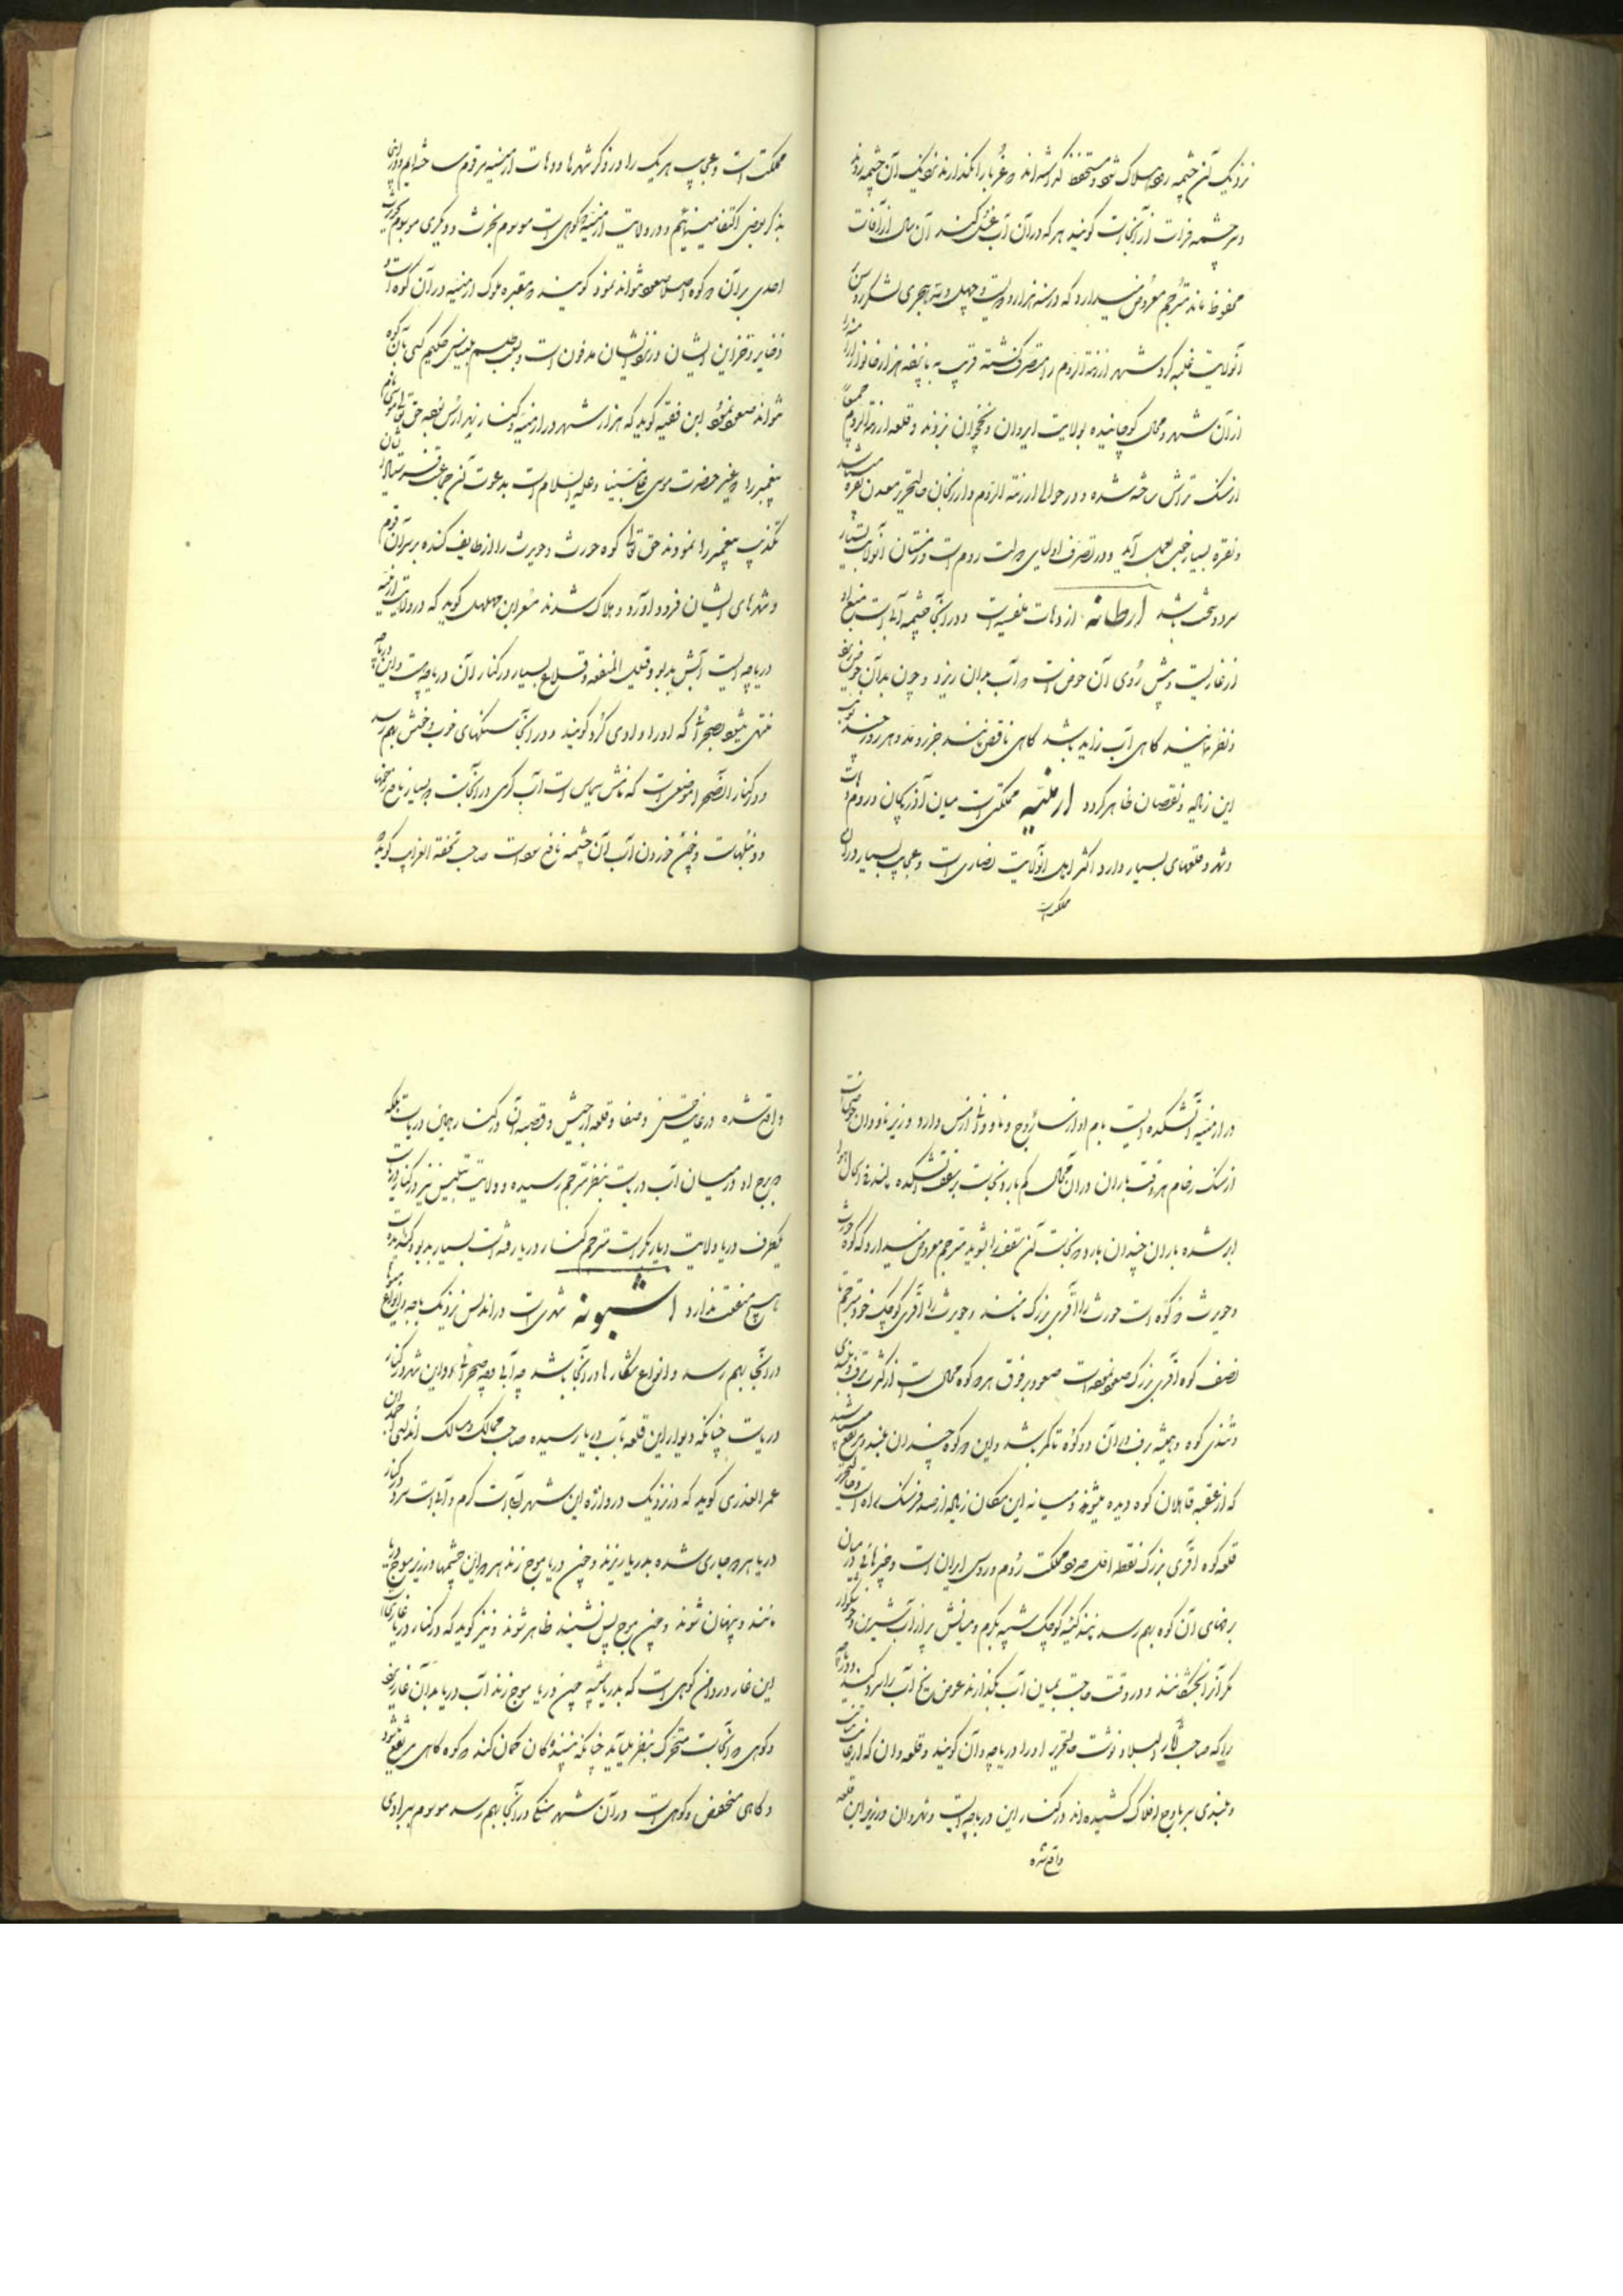 نزدیک آن چشمه رود هلاک شود و مستحفظ گذاشته‌اند و غربا را نگذارند نزدیک آن چشمه روند
و سرچشمه فرات از آنجاست گویند هر که در آن آب غسل کند آن سال از آفات
محفوظ ماند مترجم معروض میدارد که در سنه هزار و دویست و چهل و سه هجری لشکر روس
آنولایت غلبه کرد شهر ارزنة الروم را متصرف گشته قریب به پانصد هزار خانوار ارامنه را
از آن شهر و محال کوچانیده بولایت ایروان و نخجوان بردند و قلعه ارزنة الروم
از سنگ تراش ساخته شده و در حوالی ارزنة الروم و ارزنجان حالتحریر معدن نقره میباشد
و نقره بسیار خوب بعمل آید و در تصرف اولیای دولت روم است و زمستان آنولایت بسیار
سرد و سخت باشد ارطانه از دهات تفلیس است و در آنجا چشمه آبی است منبع او
از غاریست و پیش روی آن حوض است و آب بدان ریزد و چون بدان حوض
و نظر نمایند گاهی آب زاید باشد گاهی ناقص مانند جزر و مد و هر روز چند نوبت
این زیاده و نقصان ظاهر گردد ارمنیه مملکتی است میان آذربایجان و روم دهات
و شهر و قلعهای بسیار دارد اکثر اهل آنولایت نصاری است و عجایب بسیار در آن
مملکت است
مملکت است و عجایب هر یک را در ذکر شهرها و دهات ارمنیه مرقوم ساخته‌ایم و در اینجا
بذکر بعضی اکتفا مینمائیم و در ولایت ارمنیه دو کوهی است موسوم بحرث و دیگری موسوم بحویرث
احدی بر آن دو کوه اصلا صعود نتواند نمود گویند مقبره ملوک ارمنیه در آن کوه است و
ذخایر و خزاین ایشان در نزد ایشان مدفون است و بسبب طلسم بلیناس حکیم کسی بآن کوه
نتواند صعود نمود ابن فقیه گوید که هزار شهر در ارمنیه و کنار نهر ارس بود حق تعالی موسی نام
پیغمبر را و غیر حضرت موسی علی نبینا و علیه السلام است بدعوت آن جماعت فرستاد ایشان
تکذیب پیغمبر را نمودند حق تعالی کوه حورث و حویرث را از طایف کنده بر سر آن قوم
و شهرهای ایشان فرود آورد و هلاک شدند مسعر ابن مهلهل گوید که در ولایت ارمنیه
دریاچه ایست آبش بدبو و قلیل المنفعه و قلاع بسیار در کنار آن دریاچه است و این دریاچه
منتهی میشود بصحرائی که او را وادی کرد گویند و در آنجا سنگهای خوب و خوش بهم رسد
و در کنار آنصحرا موضعی است که نامش سیاس است آب گرمی در آنجاست و بسیار نافع زخمها
و دنبلهاست و چون خوردن آب آن چشمه نافع بود است صاحب تحفة الغرایب گوید که
در ارمنیه آتشکده ایست بام او از ساروج و ناودانش از مس دارد و زیر ناودان حوضی است
از سنگ رخام هر وقت باران در آن محال کم بارد نجاست بر سقف آتشکده مالند فی الحال هوا
ابر شده باران چندان بارد و نجاست آن سقف را بشوید مترجم معروض میدارد که کوه حورث
و حویرث دو کوه است حورث را آقری بزرگ نامند و حویرث را آقری کوچک خود مترجم تا
نصف کوه آقری بزرگ صعود نموده است صعود بر فوق هر دو کوه محال است از کثرت برف و بلندی
و تندی کوه و همیشه برف در آن دو کوه متراکم باشد و این دو کوه چندان بلند و مرتفع میباشد
که از عقبه قافلان کوه دیده میشوند و میانه این مکان زیاده از صد فرسنگ راه است و حالتحریر
قله کوه آقری بزرگ نقطه افتراق حدود مملکت روم و روس ایران است و چیزهائی در میان
برفهای آن کوه بهم رسد مانند کیسه کوچک شبیه بکرم و میانش پر از آب شیرین و خوشگوار
مگر آنرا بخشکانند و در وقت حاجت بمیان آب بگذارند عوض یخ آب را سرد کند و دریاچه
را که صاحب آثار البلاد نوشت حالتحریر او را دریاچه وان گویند و قلعه وان که از غایت متانت
و بلندی سر باوج افلاک کشیده‌اند در کنار این دریاچه ایست و شهر وان در زیر این قلعه
واقع شده
واقع شده در غایت خوشی و صفا و قلعه ارجیش و قصبه آن در کنار همین دریاست بلکه
دو برج او در میان آب دریاست بنظر مترجم رسیده و ولایت بتلیس نیز در کنار دریاست
یکطرف دریا ولایت دیاربکر است مترجم کنار دریا رفته است بسیار بدبو و گندیده است
هیچ منفعت ندارد اشبونه شهری است در اندلس نزدیک باجه و انواع میوها
در آنجا بهم رسد و انواع شکارها در آنجا باشد چه آبی و چه صحرائی و این شهر در کنار
دریاست چنانکه دیوار این قلعه بآب دریا رسیده صاحب ممالک و مسالک اندلسی احمد بن
عمر العذری گوید که در نزدیک دروازه این شهر آبی است گرم و آبی است سرد در کنار
دریا هر دو جاری شده بدریا ریزند و چون دریا موج زند هر دو این چشمها در زیر موج دریا
مانند و پنهان شوند و چون موج پس نشیند ظاهر شوند و نیز گوید که در کنار دریا غاری است
این غار در دامن کوهی است که بدریا پیوسته چون دریا موج زند آب دریا بدان غار ریزد
و کوهی در آنجاست متحرک بنظر میآید چنانکه بیننده گان گمان کند که کوه گاهی مرتفع شود
و گاهی منخفض و کوهی است در آن شهر سنگی در آنجا بهم رسد موسوم ببرادی